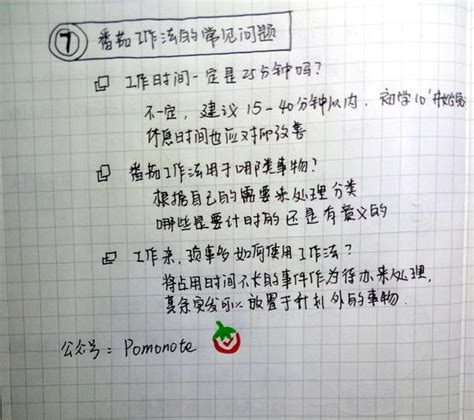 ⑦ 番茄工作法的常见问题
工作时间一定是25分钟吗?
不一定,建议15-40分钟以内,初学10'开始
休息时间也应对即改善
番茄工作法用于哪类事物?
根据自己的需要来处理分类
哪些是要计时的还是有意义的
工作杂,琐事多如何使用工作法?
将占用时间不长的事件作为待办来处理,
其余突发可以放置于计划外的事物.
公众号: Pomonote